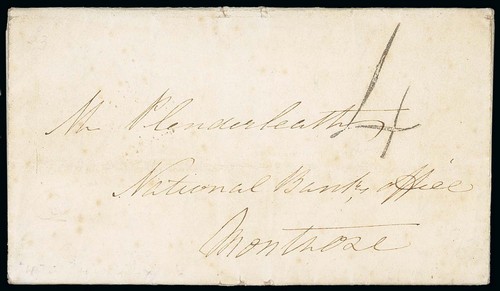 4
Mr Plenderleath
National Bank office
Montrose